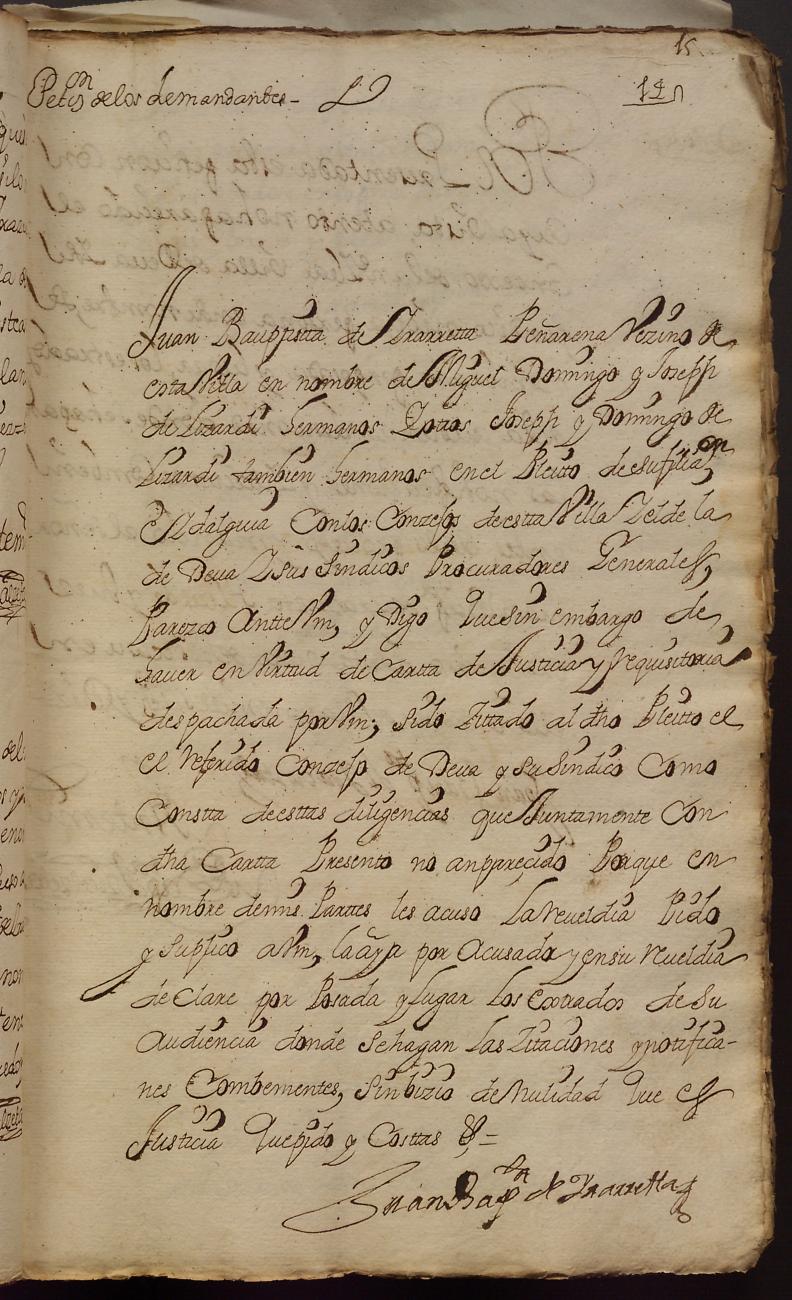 15
14
Petiⁿ de los demandantes
Juan Bauptista de Yrarretta Peñarena Vezino de
esta Villa en nombre de Miguel Domingo y Joseph
de Lizardi hermanos Zotros Joseph y Domingo de
Lizardi tambien hermanos en el Pleito de su filiaᵒⁿ
e Ydalguia Con los Conzejos de estta Villa Zel de la
de Deua Zsus sindicos Procuradores Generales,
Parezco Antte Vm, y Digo Que sin embargo de
hauer en Virtud de Cartta de Justicia y requisitoria
despachada por Vm, sido Zittado al dho Pleitto el
el referido Conzejo de Deua y su sindico Como
Constta de esttas diligencias que Juntamente Con
dha Cartta Presento no an parecido Porque en
nombre de mis Parttes les acuso La reueldia Pido
y suplico a Vm, la aya por Acusada y en su reueldia
de Clare por Posada y lugar Los extrados de su
Audiencia donde se hagan Las Zitaciones y notifica-
nes Combenientes, sin bizio de nulidad Que es
Justicia Que pido y Costtas &=
Juan Bapᵗᵃ de Yrarretta